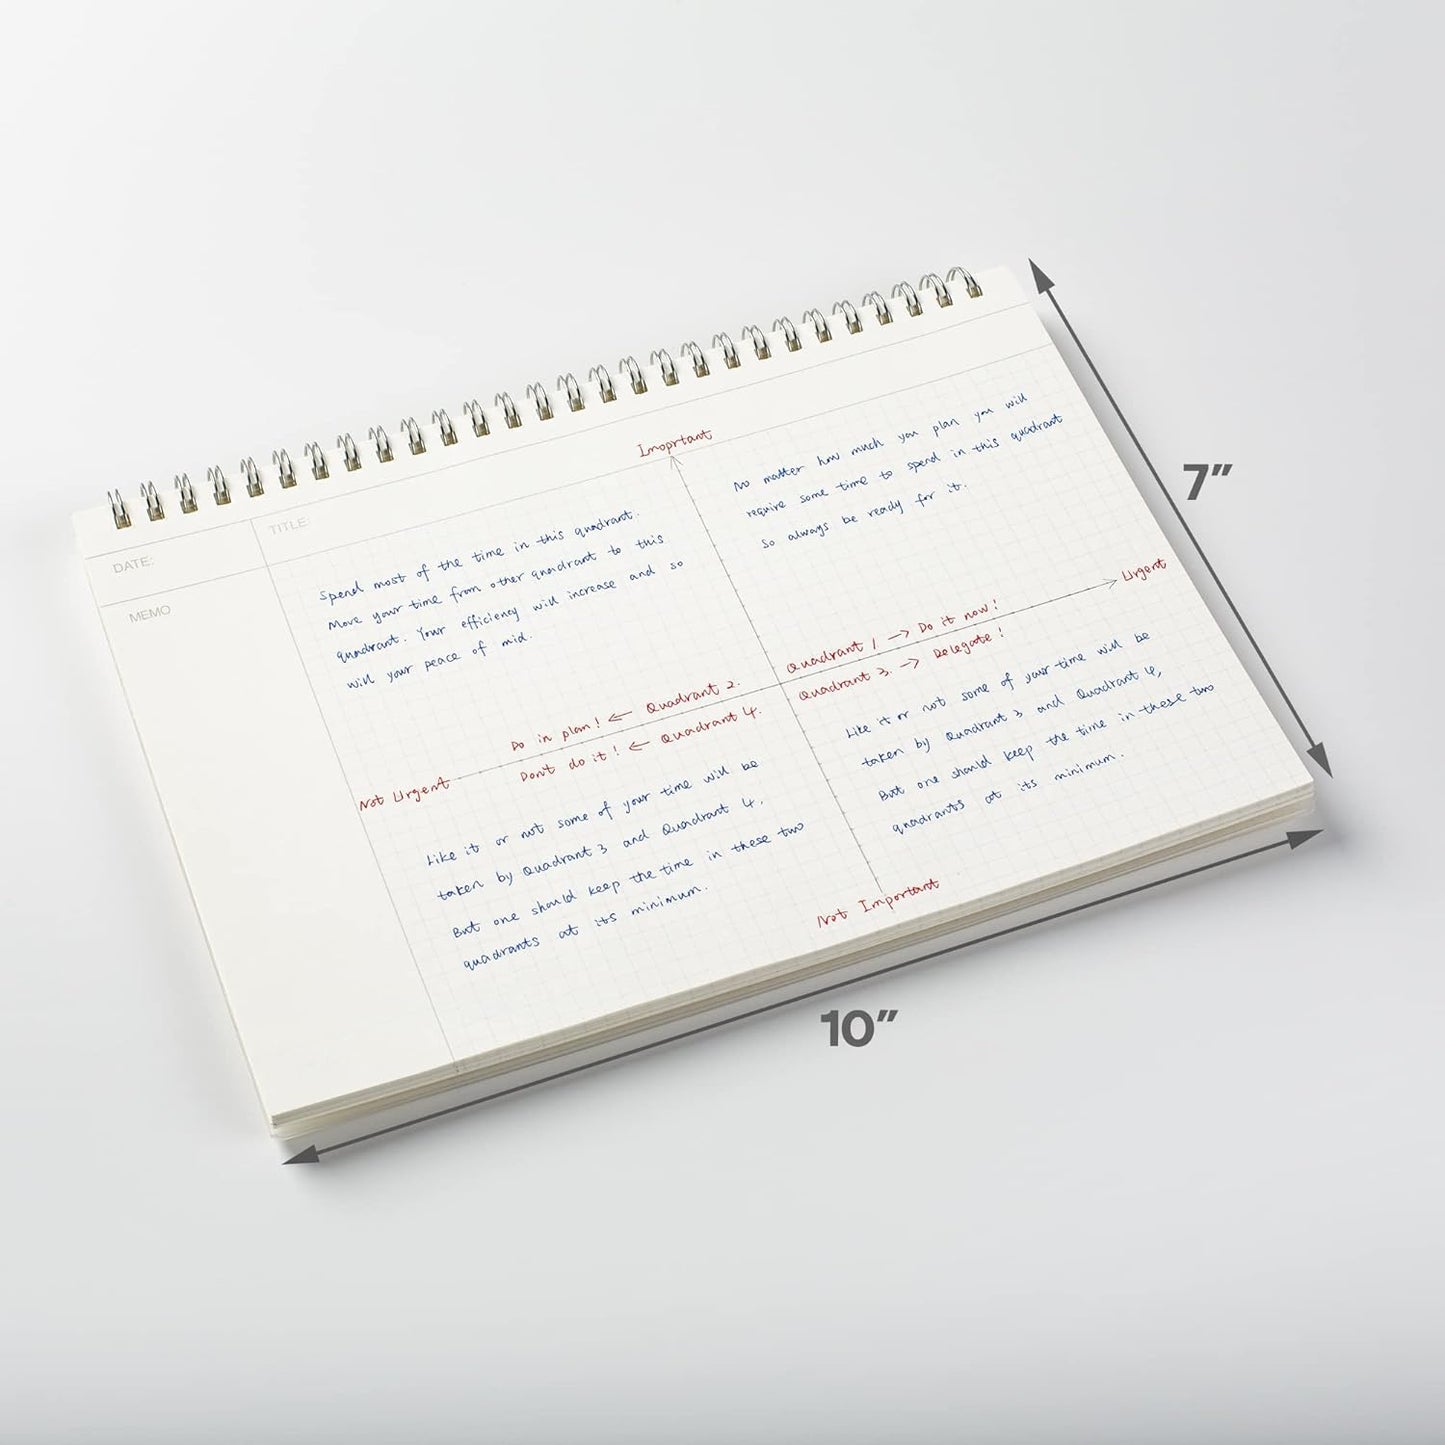 DATE:
TITLE
MEMO
Imoprtant
Spend most of the time in this quadrant.
Move your time from other quadrant to this
quadrant. Your efficiency will increase and so
will your peace of mid.
No matter how much you plan you will
require some time to spend in this quadrant
So always be ready for it.
Urgent
Do in plan! ← Quadrant 2.
Quadrant 1 → Do it now!
Not Urgent
Don't do it! ← Quadrant 4.
Quadrant 3. → Delegate!
Like it or not some of your time will be
taken by Quadrant 3 and Quadrant 4.
But one should keep the time in these two
quadrants at its minimum.
Like it or not some of your time will be
taken by Quadrant 3 and Quadrant 4,
But one should keep the time in these two
quadrants at its minimum.
Not Important
7"
10"